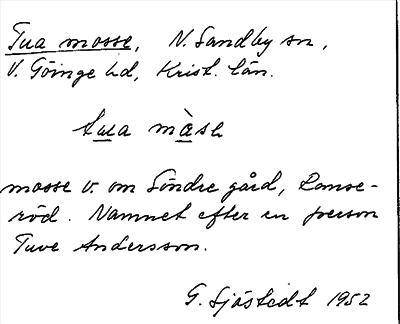 Tua mosse, N. Sandby sn,
V. Göinge hd, Krist. län.
tua màse
mosse v. om Söndre gård, Ramse-
röd. Namnet efter en person
Tuve Andersson.
G. Sjöstedt 1952